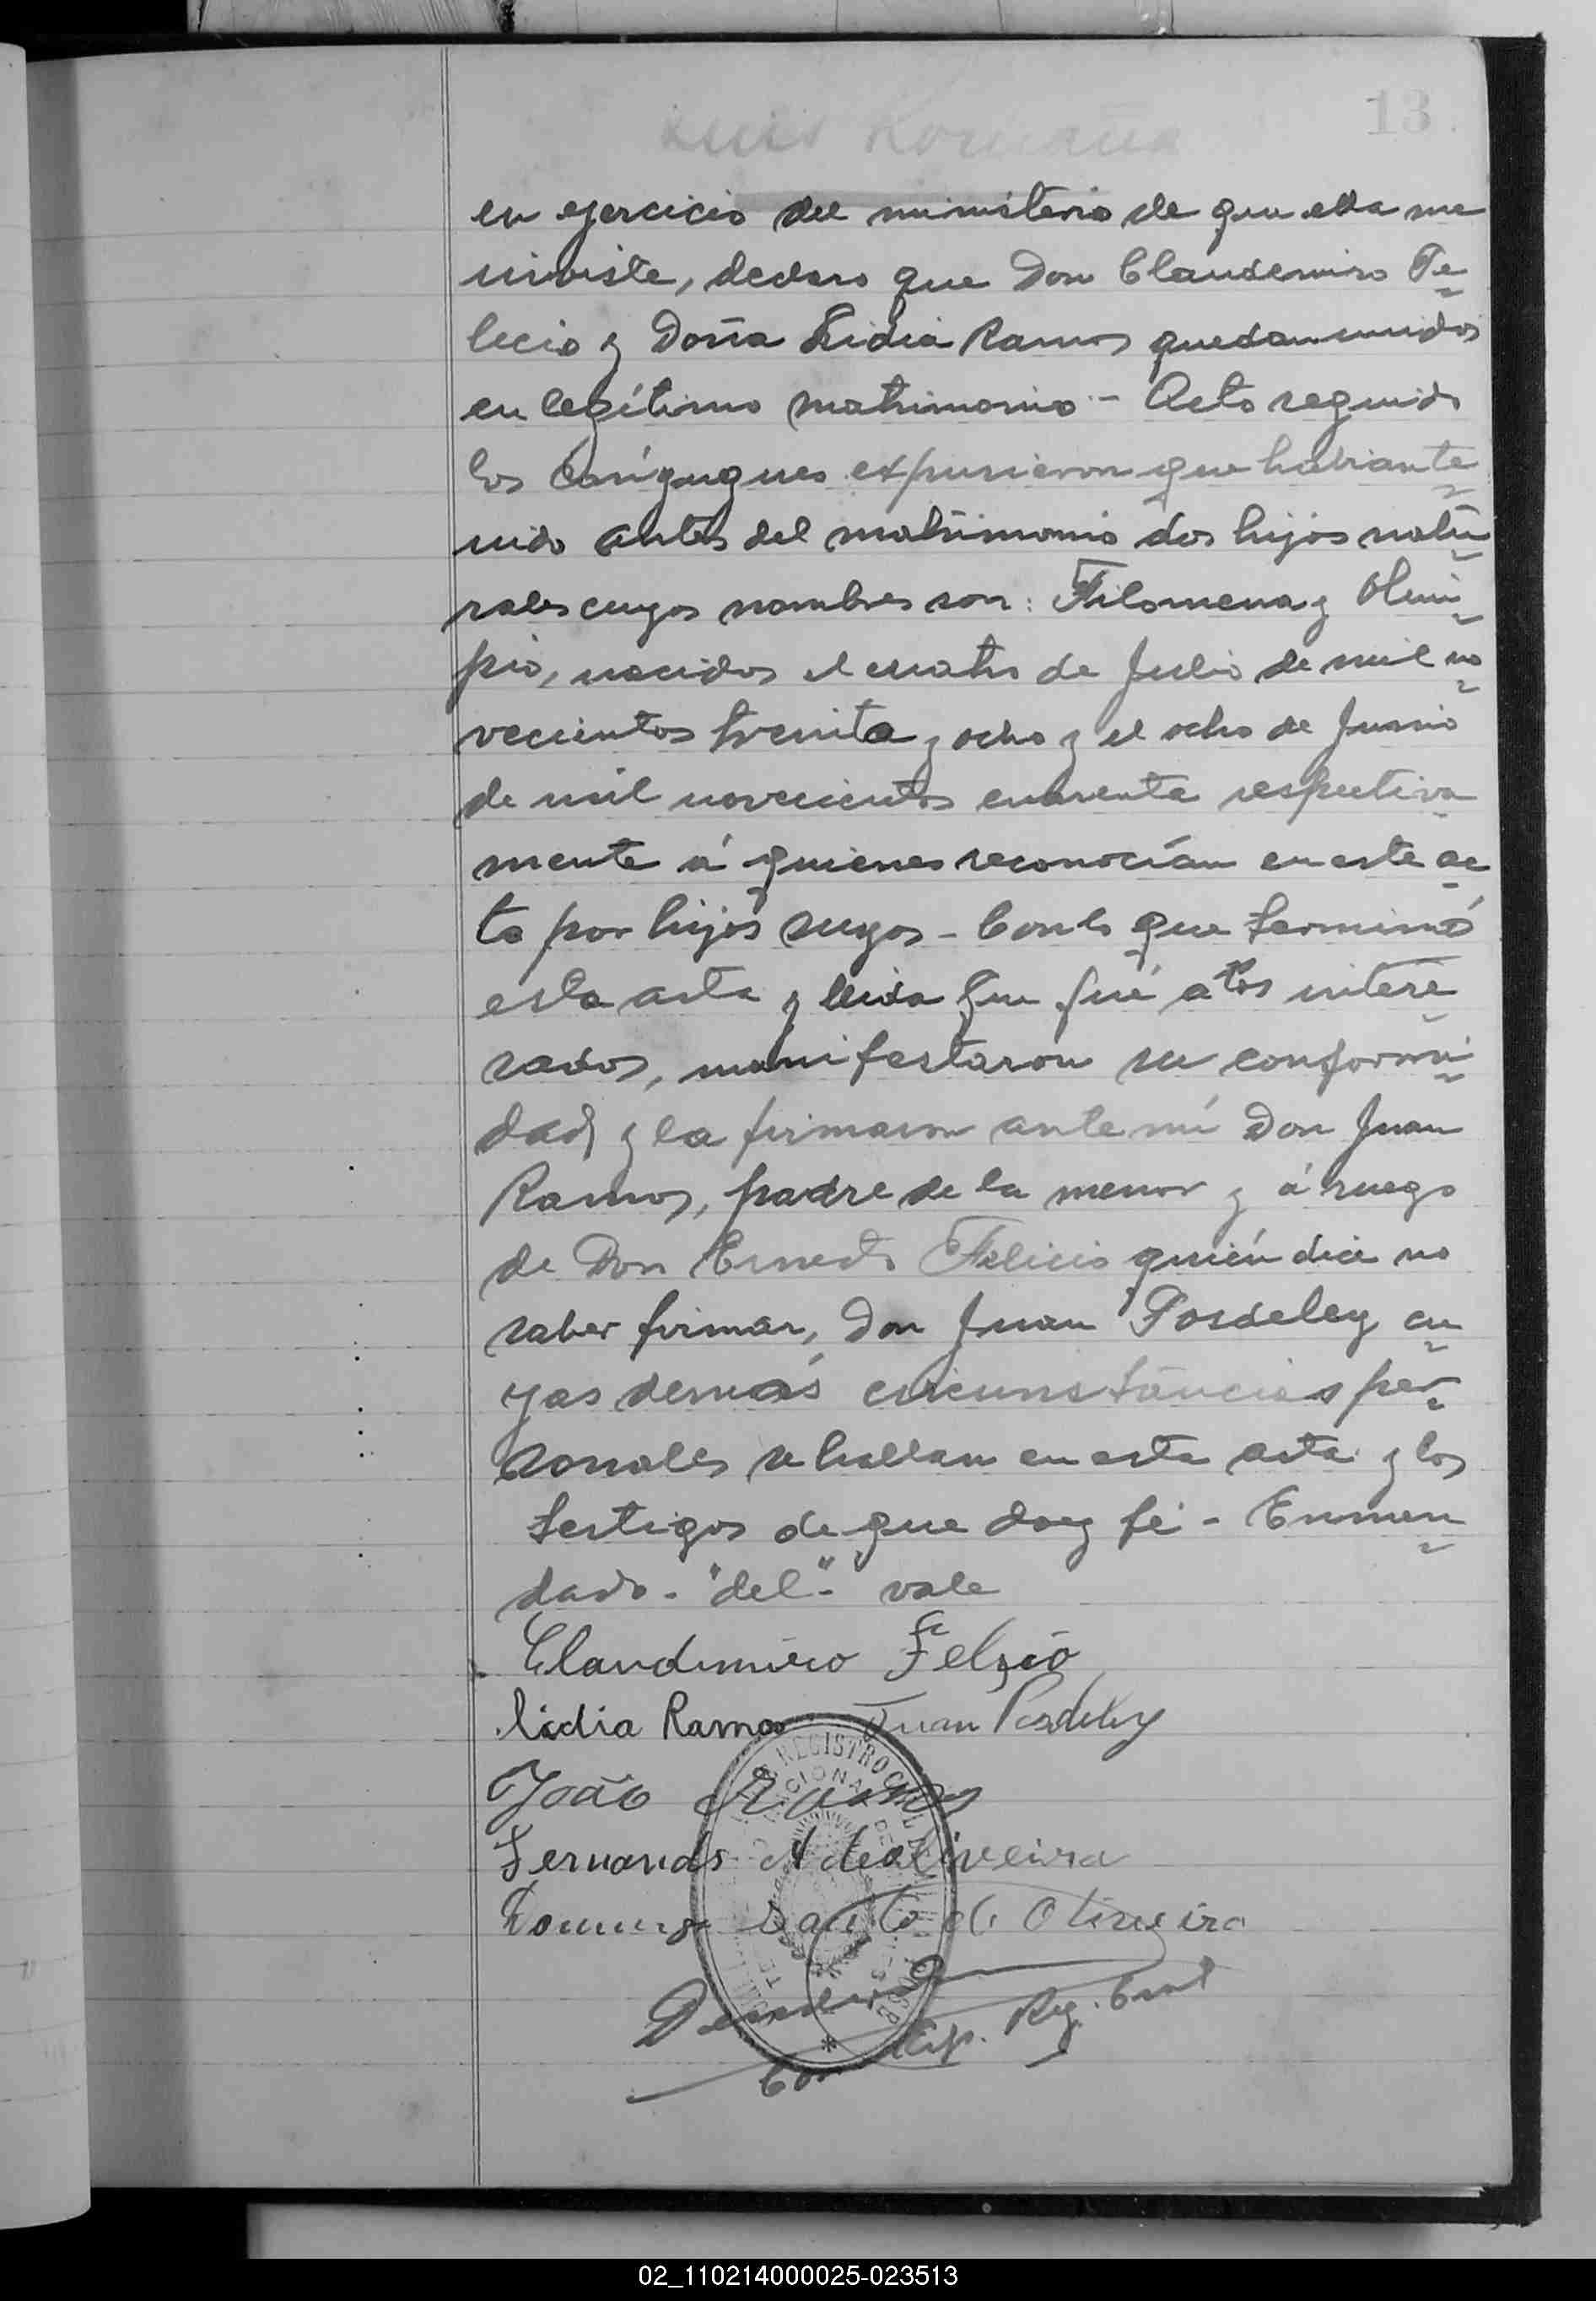 13
en ejercicio del ministerio de que ella me
inviste, declaro que Don Claudemiro Fe
licio y Doña Lidia Ramos quedan unidos
en legítimo matrimonio - Acto seguido
los cónyugues expusieron que habian te
nido antes del matrimonio dos hijos natu
rales cuyos nombres son: Filomena y Olim
pio, nacidos el cuatro de Julio de mil no
vecientos treinta y ocho y el ocho de Junio
de mil novecientos cuarenta respectiva
mente á quienes reconocían en este ac
to por hijos suyos - Con lo que terminó
esta acta y leida que fué a los intere
sados, manifestaron su conformi
dad y la firmaron ante mí Don Juan
Ramos, padre de la menor y á ruego
de Don Ernesto Felicio quién dice no
saber firmar, Don Juan Posdeley cu
yas demás circunstancias per
sonales se hallan en esta acta y los
testigos de que doy fé - Enmen
dado - "del" - vale
Claudimiro Felisio
Lidia Ramos Juan Posdeley
João Ramos
Fernando A de oliveira
Domingo Santo de Oliveira
REGISTRO CIVIL
Reg. Civil
02_110214000025-023513